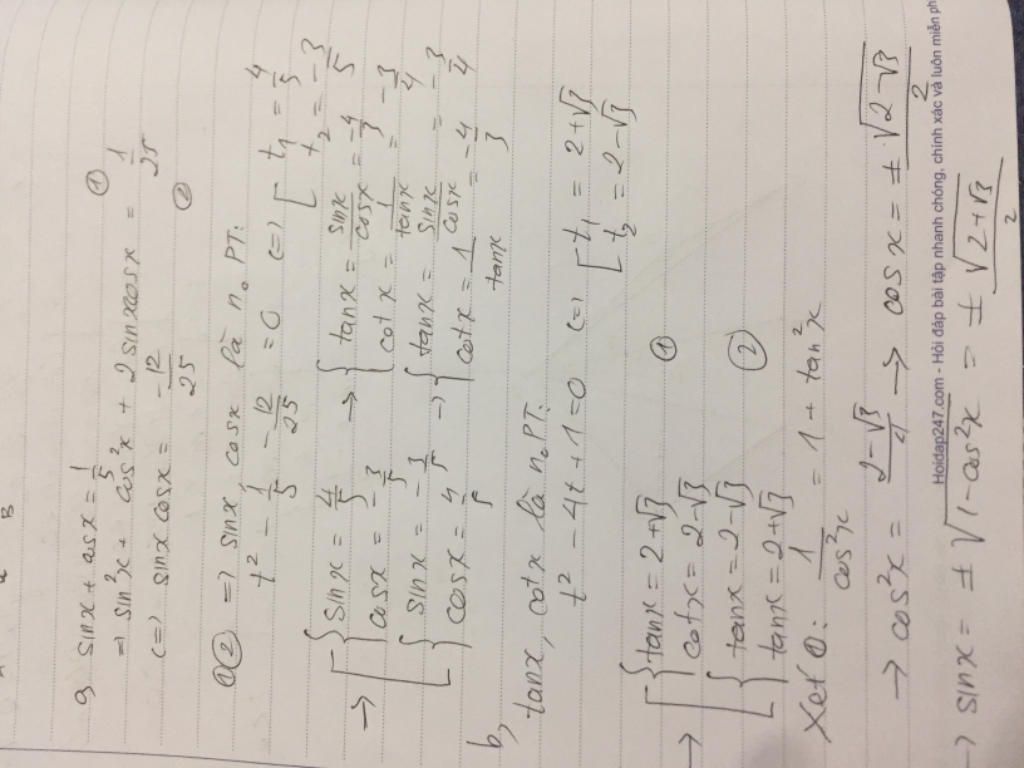 a, sinx + cosx = 1/5 ①
=> sin²x + cos²x + 2sinxcosx = 1/25
(=) sinxcosx = -12/25 ②
①② => sinx, cosx là n₀ PT:
t² - 1/5 - 12/25 = 0 (=) [ t₁ = 4/5
t₂ = -3/5
-> [ { sinx = 4/5 -> { tanx = sinx/cosx = -4/3
cosx = -3/5 cotx = 1/tanx = -3/4
[ { sinx = -3/5 -> { tanx = sinx/cosx = -3/4
cosx = 4/5 cotx = 1/tanx = -4/3
b,
tanx, cotx là n₀ PT:
t² - 4t + 1 = 0 (=) [ t₁ = 2+√3
t₂ = 2-√3
-> [ { tanx = 2+√3 ①
cotx = 2-√3
[ { tanx = 2-√3 ②
tanx = 2+√3
Xét ①: 1/cos²x = 1 + tan²x
-> cos²x = 2-√3/4 -> cosx = ± √2-√3/2
Hoidap247.com - Hỏi đáp bài tập nhanh chóng, chính xác và luôn miễn ph
-> sinx = ± √1-cos²x = ± √2+√3/2